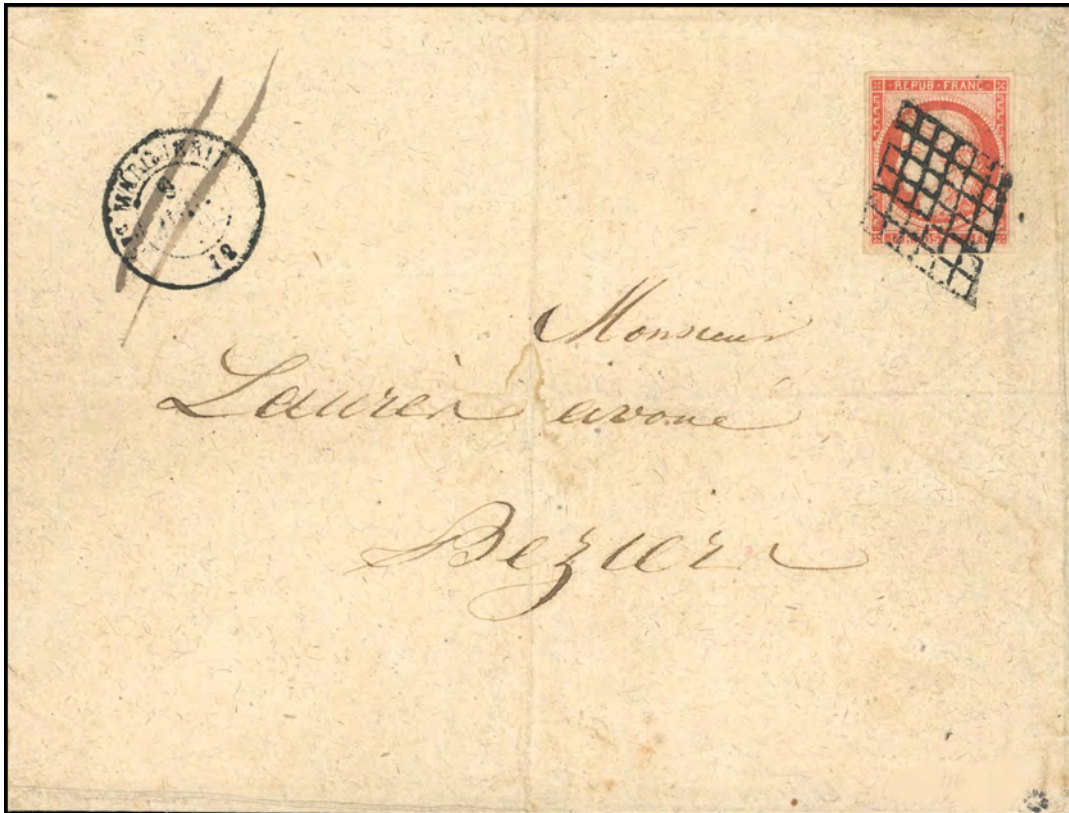 REPUB·FRANC·
Monsieur
Laurèn avoué
Beziers
12